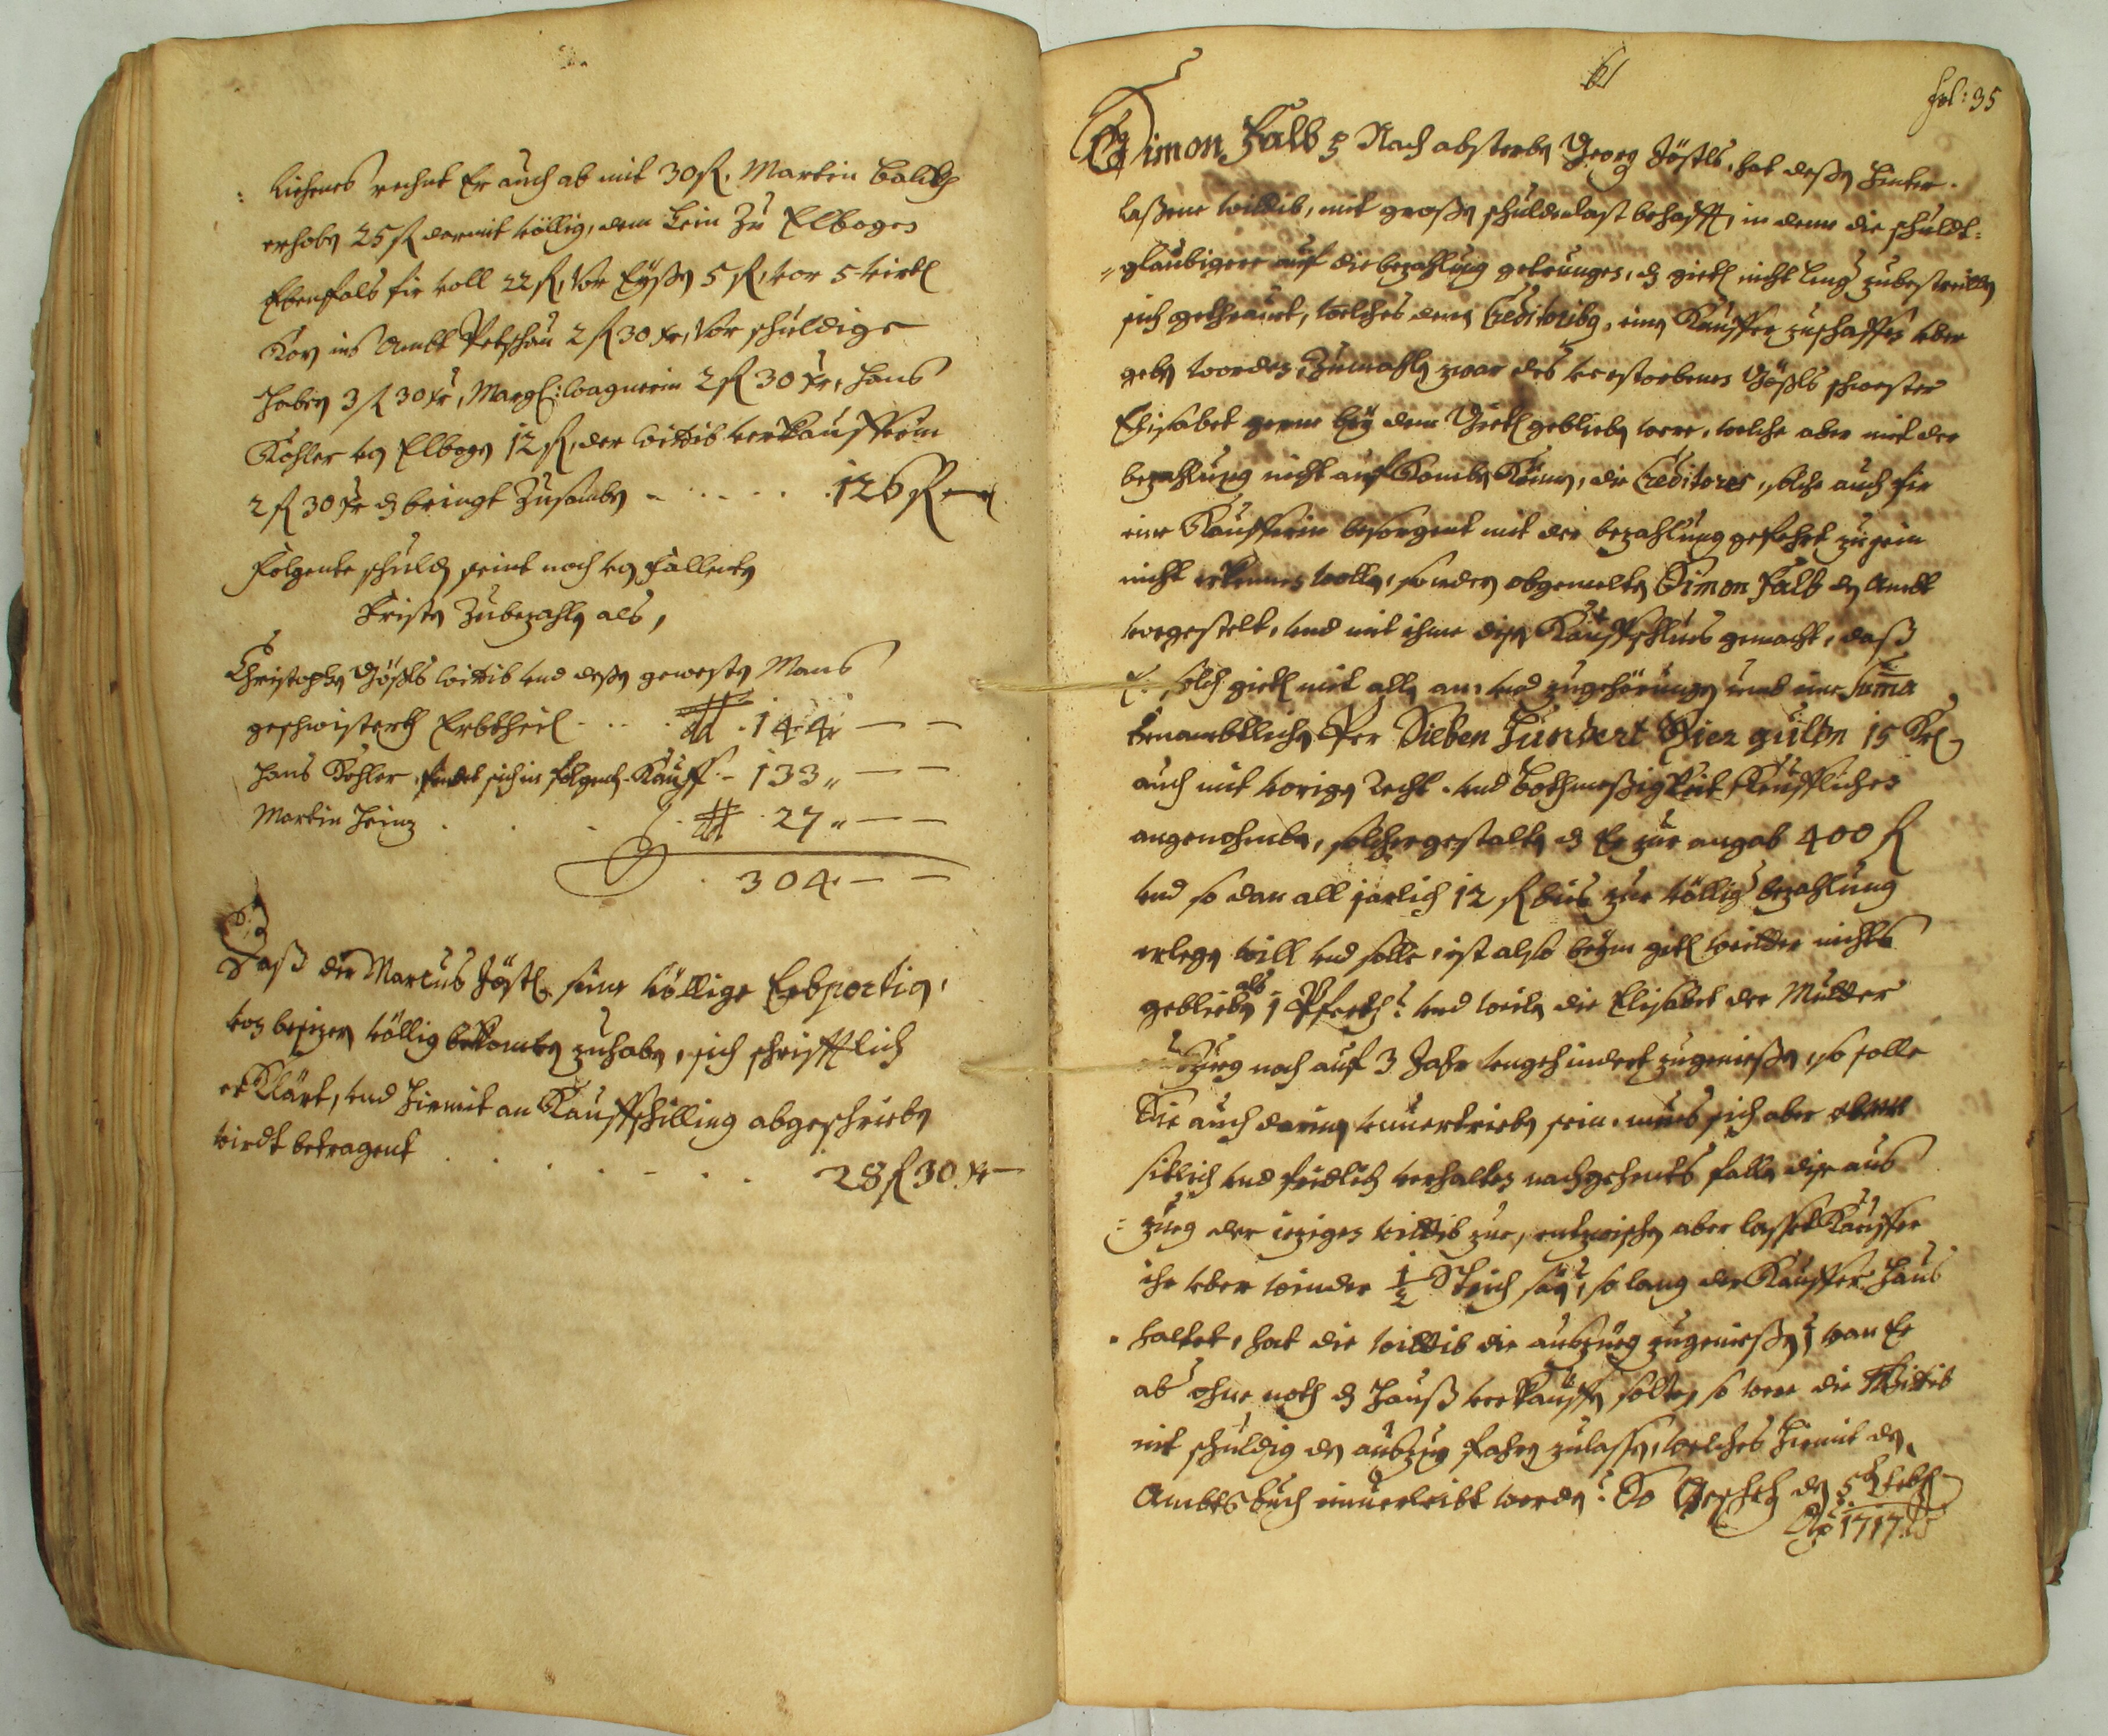 liehenes rechnet Er auch ab mit 30 fl, Martin
erhoben 25 fl darmit völlig, dem Lein Zu Elbogen
Ebenfals für voll 22 fl, Vor Eyßen 5 fl, vor 5 virtl
Korn ins Ambt Petschau 2 fl 30 xr, Vor schuldige
Habern 3 fl 30 xr, Margl: Wagnerin 2 fl 30 xr, Hans
Köhler von Elbogen 12 fl, der Wittib verkaufferin
2 fl 30 xr dz bringt Zusamben - . . . . 126 fl —
Folgente schulden seint noch von fallenten
Fristen Zubezahlen als,
Christophen Jößls Wittib und deßen gewesten Mans
geschwisterth Erbtheil . . . . 144 — —
Hans Köhler, findet sich in folgenden Kauff - 133 „ — —
Martin Heinz . . . 27 „ — —
304 — —
Daß der Marcus Jößl, seine völlige Erbportion,
von besizern völlig bekomben zuhaben, sich schrifftlich
erklärt, und hiermit an Kauffschilling abgeschrieben
wirdt betragent . . . . . . 28 fl 30 xr —
61
fol: 35
Simon Falb Nach absterben Georg Jößls, hat deßen hinter-
laßene Wittib, mit großen schuldenlast behafft, in deme die schuldt-
glaubigere auf die bezahlung getrungen, dz güetl nicht lang zubestreitten
sich gethrauet, welches denen Creditoribus, einen Kauffer zuschaffen über
geben worden, Zumahlen zwar des verstorbenen Jößls schwester
Elisabet gerne bey dem Güetl geblieben were, welche aber mit der
bezahlung nicht auf Komben Können, die Creditores, solche auch für
eine Kaufferin besorgent mit der bezahlung gefehrt zu sein
nicht erkennen wollen, sondern obgemelten Simon Falb den Ambt
vorgestelt, und mit ihme disen Kauffschlues gemacht, daß
Er solch güetl mit allen an- und zugehörungen umb eine Suma
benambtlichen Per Sieben Hundert Vier gulden 15 Kr
auch mit vorigen Recht- und Bothmeßigkeit Keufflichen
angenohmben, solchergestalten dz Er zur angab 400 fl
und so dan all jarlich 12 fl bies zur völlig bezahlung
erlegen will und solle, ist also beym güetl weitter nichts
geblieben als 1 Pferdt: und weilen die Elisabet der Mutter
Auszug noch auf 3 Jahr ungehindert zugenießen, so solle
Sie auch darinen unvertrieben sein, mues sich aber
sittlich und fridlich verhalten nachgehents fallen dise aus
zueg der iezigen wittib zue, entzwischen aber lasset Kauffer
ihr über winder 1/2 Strich säen, so lang der Kauffer Haus
haltet, hat die wittib die auszueg zugenießen, wan Er
ab ohne noth dz Hauß verkauffen solte, so were die Wittib
nit schuldig den auszug fahren zulassen, welches hiermit den
Ambts buch einverleibt worden: So Geschehen den 5 Febr
Ao 1717